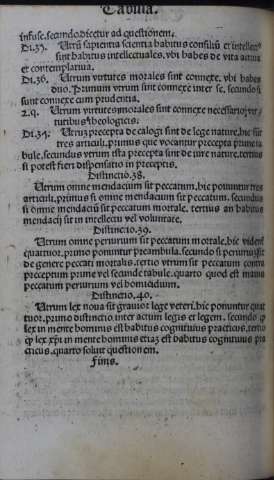 Tabula.
infuse. secundo dicetur ad questionem.
Di.35. Utrum sapientia scientia habitus consilium et intellectus
sint habitus intellectuales, vbi habes de vita activa
et contemplativa.
Di.36. Utrum virtutes morales sint connexe. vbi habes
duo. Primum vtrum sint connexe inter se, secundo si
sunt connexe cum prudentia.
2.q. Utrum virtutes morales sint connexe necessario virtutibus theologicis.
Di.37. Utrum precepta decalogi sint de lege nature, hic sunt
tres articuli. primus que vocantur precepta prime tabule. secundus vtrum ista precepta sint de iure nature, tertius
si potest fieri dispensatio in preceptis.
Distinctio.38.
Utrum omne mendacium sit peccatum. hic ponuntur tres
articuli. primus si omne mendacium sit peccatum. secundus
si omne mendacium sit peccatum mortale. tertius an habitus
mendacij sit in intellectu vel voluntate.
Distinctio.39.
Utrum omne periurium sit peccatum mortale. hic vident
quattuor. primo ponuntur preambula. secundo si periurium sit
de genere peccati mortalis. tertio vtrum sit peccatum contra
preceptum prime vel secunde tabule. quarto quod est maius
peccatum periurium vel homicidium.
Distinctio.40.
Utrum lex noua sit grauior lege veteri. hic ponuntur quattuor. primo distinctio inter actum legis et legem. secundo q
lex in mente hominis est habitus cognitiuus practicus. tertio
q lex xpi in mente hominis etiam est habitus cognitiuus practicus. quarto soluit questionem.
Finis.